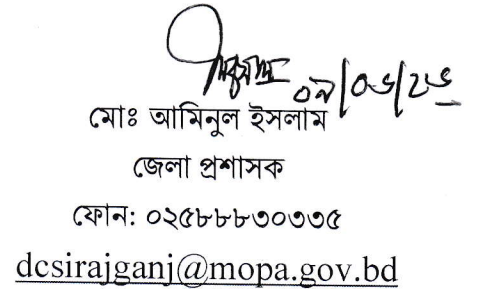 ০৯/০৬/২৬
মোঃ আমিনুল ইসলাম
জেলা প্রশাসক
ফোন: ০২৫৮৮৮৩০৩৩৫
dcsirajganj@mopa.gov.bd